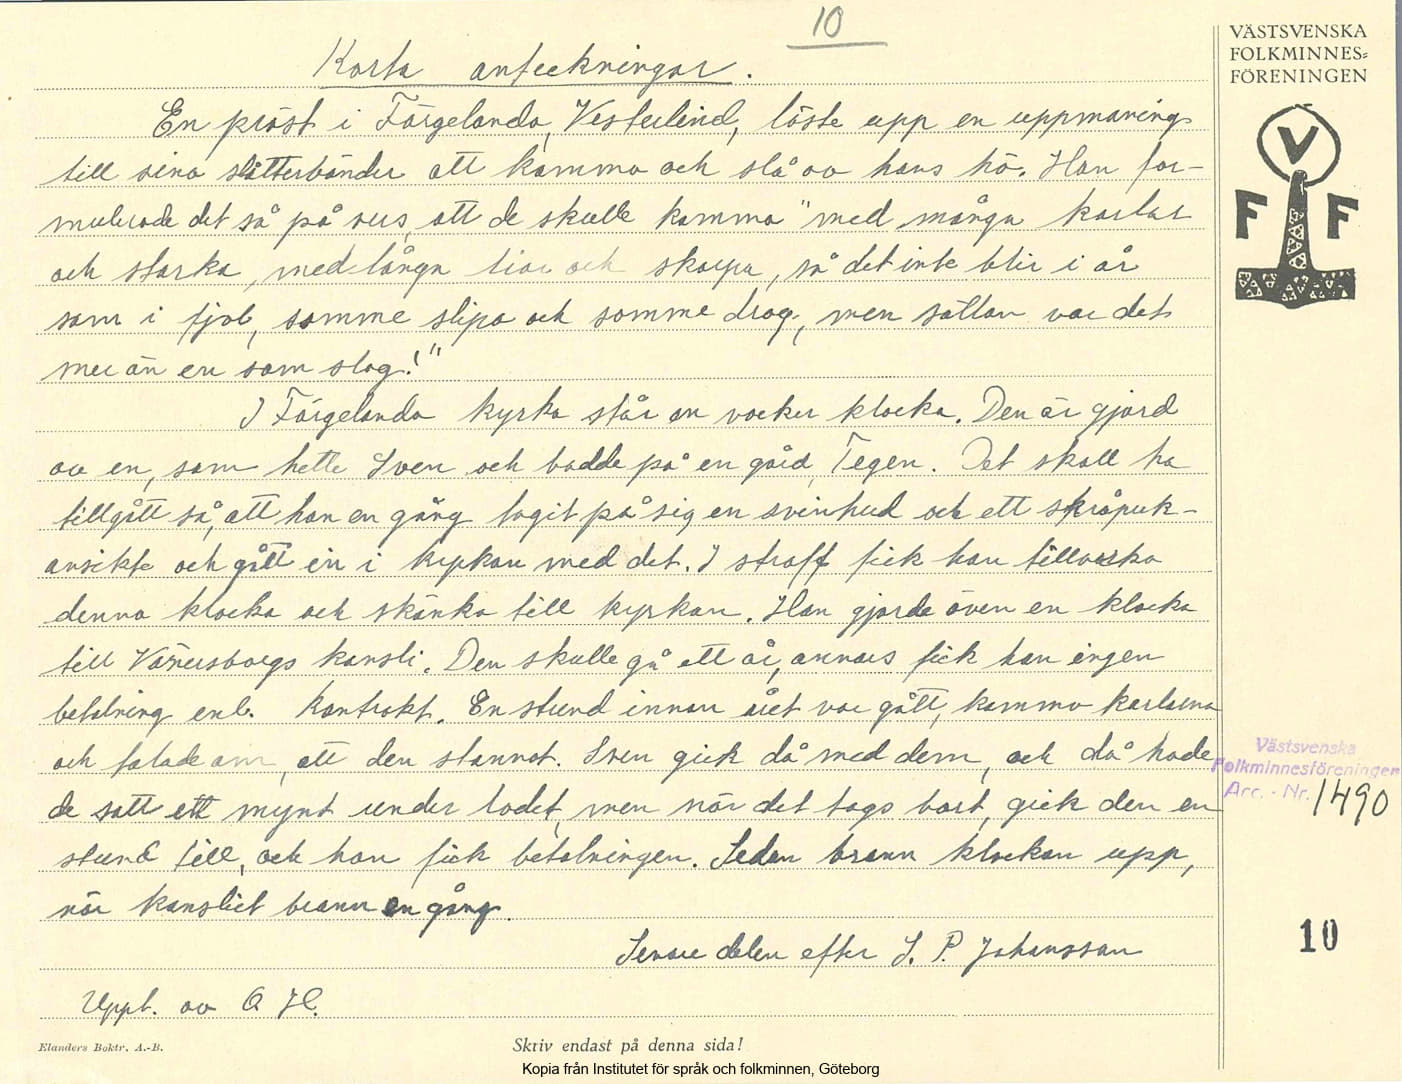 10
VÄSTSVENSKA
FOLKMINNES=
FÖRENINGEN
V
F F
Korta anteckningar.
En präst i Färgelanda, Vesterlind, läste upp en uppmaning
till sina slåtterbönder att komma och slå av hans hö. Han for-
mulerade det så på vers, att de skulle komma "med många karlar
och starka, med långa liar och skarpa, så det inte blir i år
som i fjol, somme slipa och somme drog, men sällan var det
mer än en som slog!"
I Färgelanda kyrka står en vacker klocka. Den är gjord
av en, som hette Sven och bodde på en gård, Tegen. Det skall ha
tillgått så, att han en gång tagit på sig en svinhud och ett skråpuk-
ansikte och gått in i kyrkan med det. I straff fick han tillverka
denna klocka och skänka till kyrkan. Han gjorde även en klocka
till Vänersborgs kansli. Den skulle gå ett år, annars fick han ingen
betalning enl. kontrakt. En stund innan året var gått, kommo karlarna
och talade om, att den stannat. Sven gick då med dem, och då hade
de satt ett mynt under lodet, men när det togs bort, gick den en
stund till, och han fick betalningen. Sedan brann klockan upp,
när kansliet brann en gång.
Senare delen efter S. P. Johansson
Uppt. av O H.
Västsvenska
Folkminnesföreningen
Acc. - Nr. 1490
10
Elanders Boktr. A.-B.
Skriv endast på denna sida!
Kopia från Institutet för språk och folkminnen, Göteborg